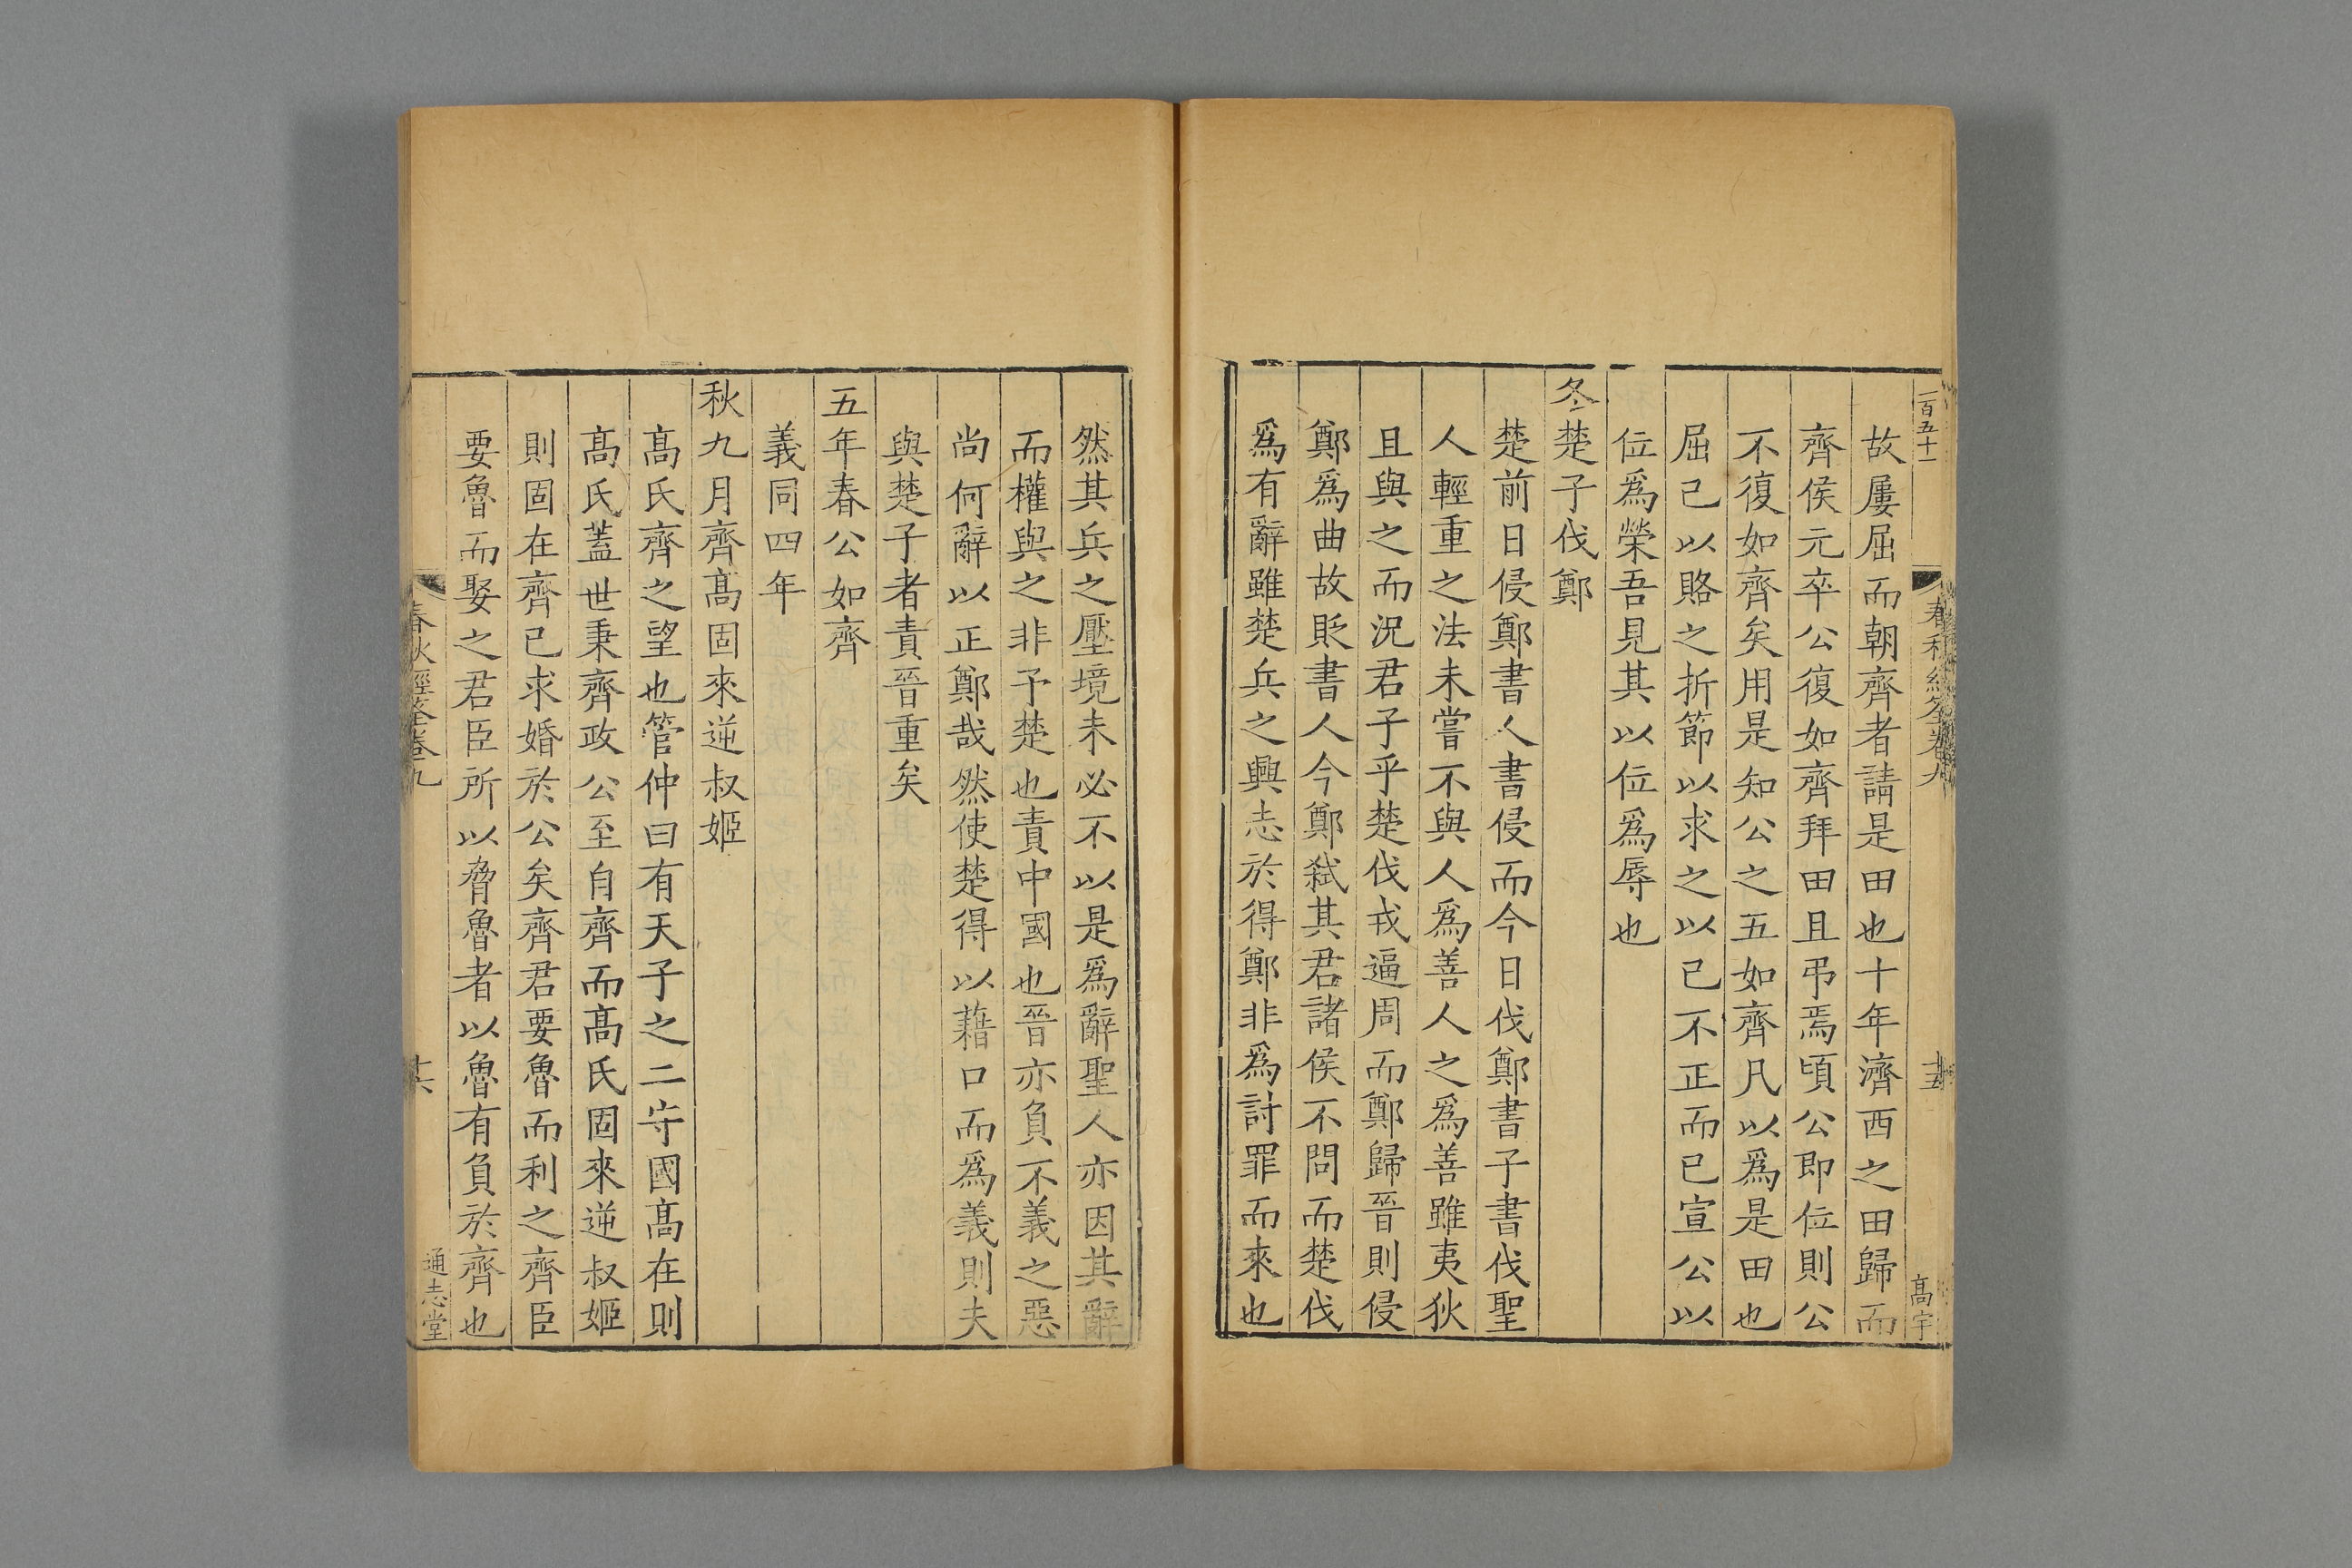 一百五十一 春秋經筌卷九 十五 高宇
故屢屈而朝齊者請是田也十年濟西之田歸而
齊侯元卒公復如齊拜田且弔焉頃公即位則公
不復如齊矣用是知公之五如齊凡以爲是田也
屈己以賂之折節以求之以已不正而已宣公以
位爲榮吾見其以位爲辱也
冬楚子伐鄭
楚前日侵鄭書人書侵而今日伐鄭書子書伐聖
人輕重之法未嘗不與人爲善人之爲善雖夷狄
且與之而況君子乎楚伐戎逼周而鄭歸晉則侵
鄭爲曲故貶書人今鄭弑其君諸侯不問而楚伐
爲有辭雖楚兵之興志於得鄭非爲討罪而來也
然其兵之壓境未必不以是爲辭聖人亦因其辭
而權與之非予楚也責中國也晉亦負不義之惡
尚何辭以正鄭哉然使楚得以藉口而爲義則夫
與楚子者責晉重矣
五年春公如齊
義同四年
秋九月齊髙固來逆叔姬
髙氏齊之望也管仲曰有天子之二守國髙在則
髙氏蓋世秉齊政公至自齊而髙氏固來逆叔姬
則固在齊已求婚於公矣齊君要魯而利之齊臣
要魯而娶之君臣所以脅魯者以魯有負於齊也
春秋經筌卷九 十六 通志堂